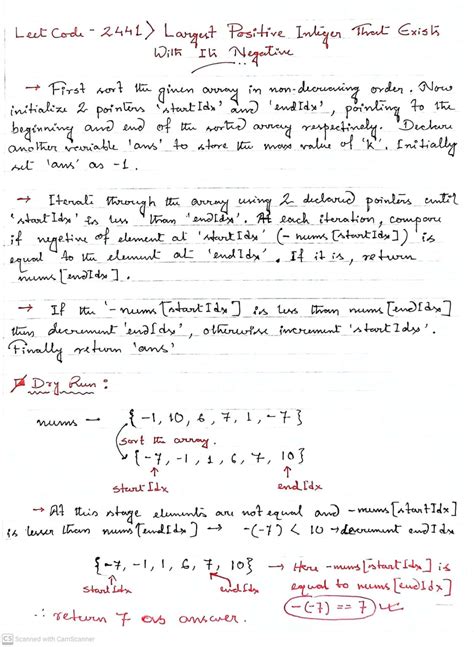 LeetCode - 2441> Largest Positive Integer That Exists
With Its Negative
→ First sort the given array in non-decreasing order. Now
initialize 2 pointers 'startIdx' and 'endIdx', pointing to the
beginning and end of the sorted array respectively. Declare
another variable 'ans' to store the max value of 'k'. Initially
set 'ans' as -1.
→ Iterate through the array using 2 declared pointers until
'startIdx' is less than 'endIdx'. At each iteration, compare
if negetive of element at 'startIdx' (-nums[startIdx]) is
equal to the element at 'endIdx'. If it is, return
nums[endIdx].
→ If the '-nums[startIdx] is less than nums[endIdx]
then decrement 'endIdx', otherwise increment 'startIdx'.
Finally return 'ans'
Dry Run:
nums → {-1, 10, 6, 7, 1, -7}
sort the array.
{-7, -1, 1, 6, 7, 10}
↑ ↑
startIdx endIdx
→ At this stage elements are not equal and -nums[startIdx]
is lesser than nums[endIdx] → -(-7) < 10 → decrement endIdx
{-7, -1, 1, 6, 7, 10} → Here -nums[startIdx] is
startIdx endIdx equal to nums[endIdx]
-(-7) == 7
∴ return 7 as answer.
CS Scanned with CamScanner